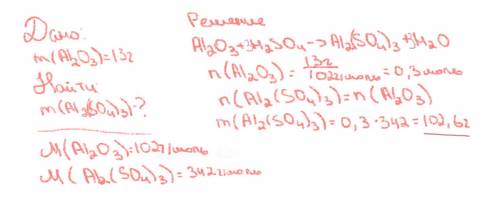 Дано:
m(Al₂O₃)=13г
Найти
m(Al₂(SO₄)₃)-?
M(Al₂O₃)=102г/моль
M(Al₂(SO₄)₃)=342г/моль
Решение
Al₂O₃+3H₂SO₄->Al₂(SO₄)₃+3H₂O
n(Al₂O₃)=13г/102г/моль=0,3моль
n(Al₂(SO₄)₃)=n(Al₂O₃)
m(Al₂(SO₄)₃)=0,3·342=102,6г